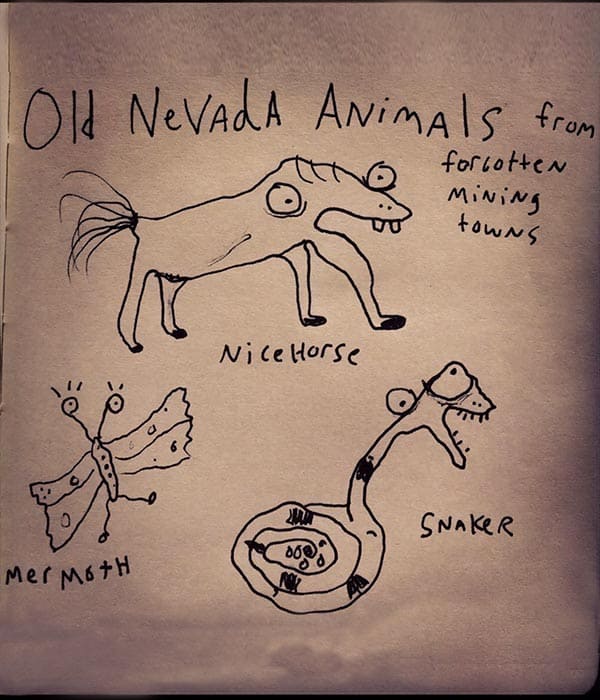 Old NevAdA ANiMAlS from
forgotteN
MiNiNg
towNs
Nice Horse
Mer MotH
SNAKeR